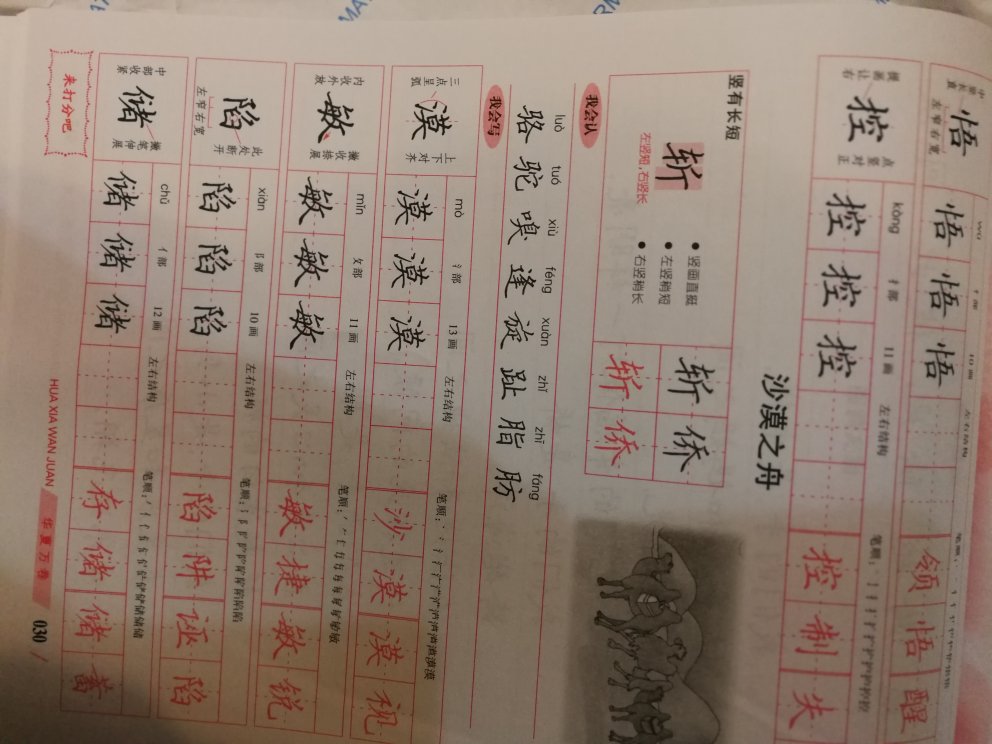 中竖
左窄右宽
悟 悟 悟 悟 领 悟 醒
wù
10画
提画让右
点竖对正
kòng 扌部 11画 左右结构 笔顺:
控 控 控 控 控 制 失
沙漠之舟
竖有长短
斩
左竖短,右竖长
●竖画直挺
●左竖稍短
●右竖稍长
斩 侨
斩 侨
我会认
luò tuó xiù féng xuàn zhǐ zhī fáng
骆 驼 嗅 逢 旋 趾 脂 肪
我会写
三点呈弧
上下对齐
mò 氵部 13画 左右结构 笔顺:
漠 漠 漠 漠 沙 漠 漠 视
内收外放
撇收捺展
mǐn 攵部 11画 左右结构 笔顺:
敏 敏 敏 敏 敏 捷 敏 锐
左窄右宽
此处断开
xiàn 阝部 10画 左右结构 笔顺:
陷 陷 陷 陷 陷 阱 诬 陷
中部收紧
撇笔伸展
chǔ 亻部 12画 左右结构 笔顺:
储 储 储 储 存 储 储 蓄
来打分吧
HUA XIA WAN JUAN 华夏万卷 030